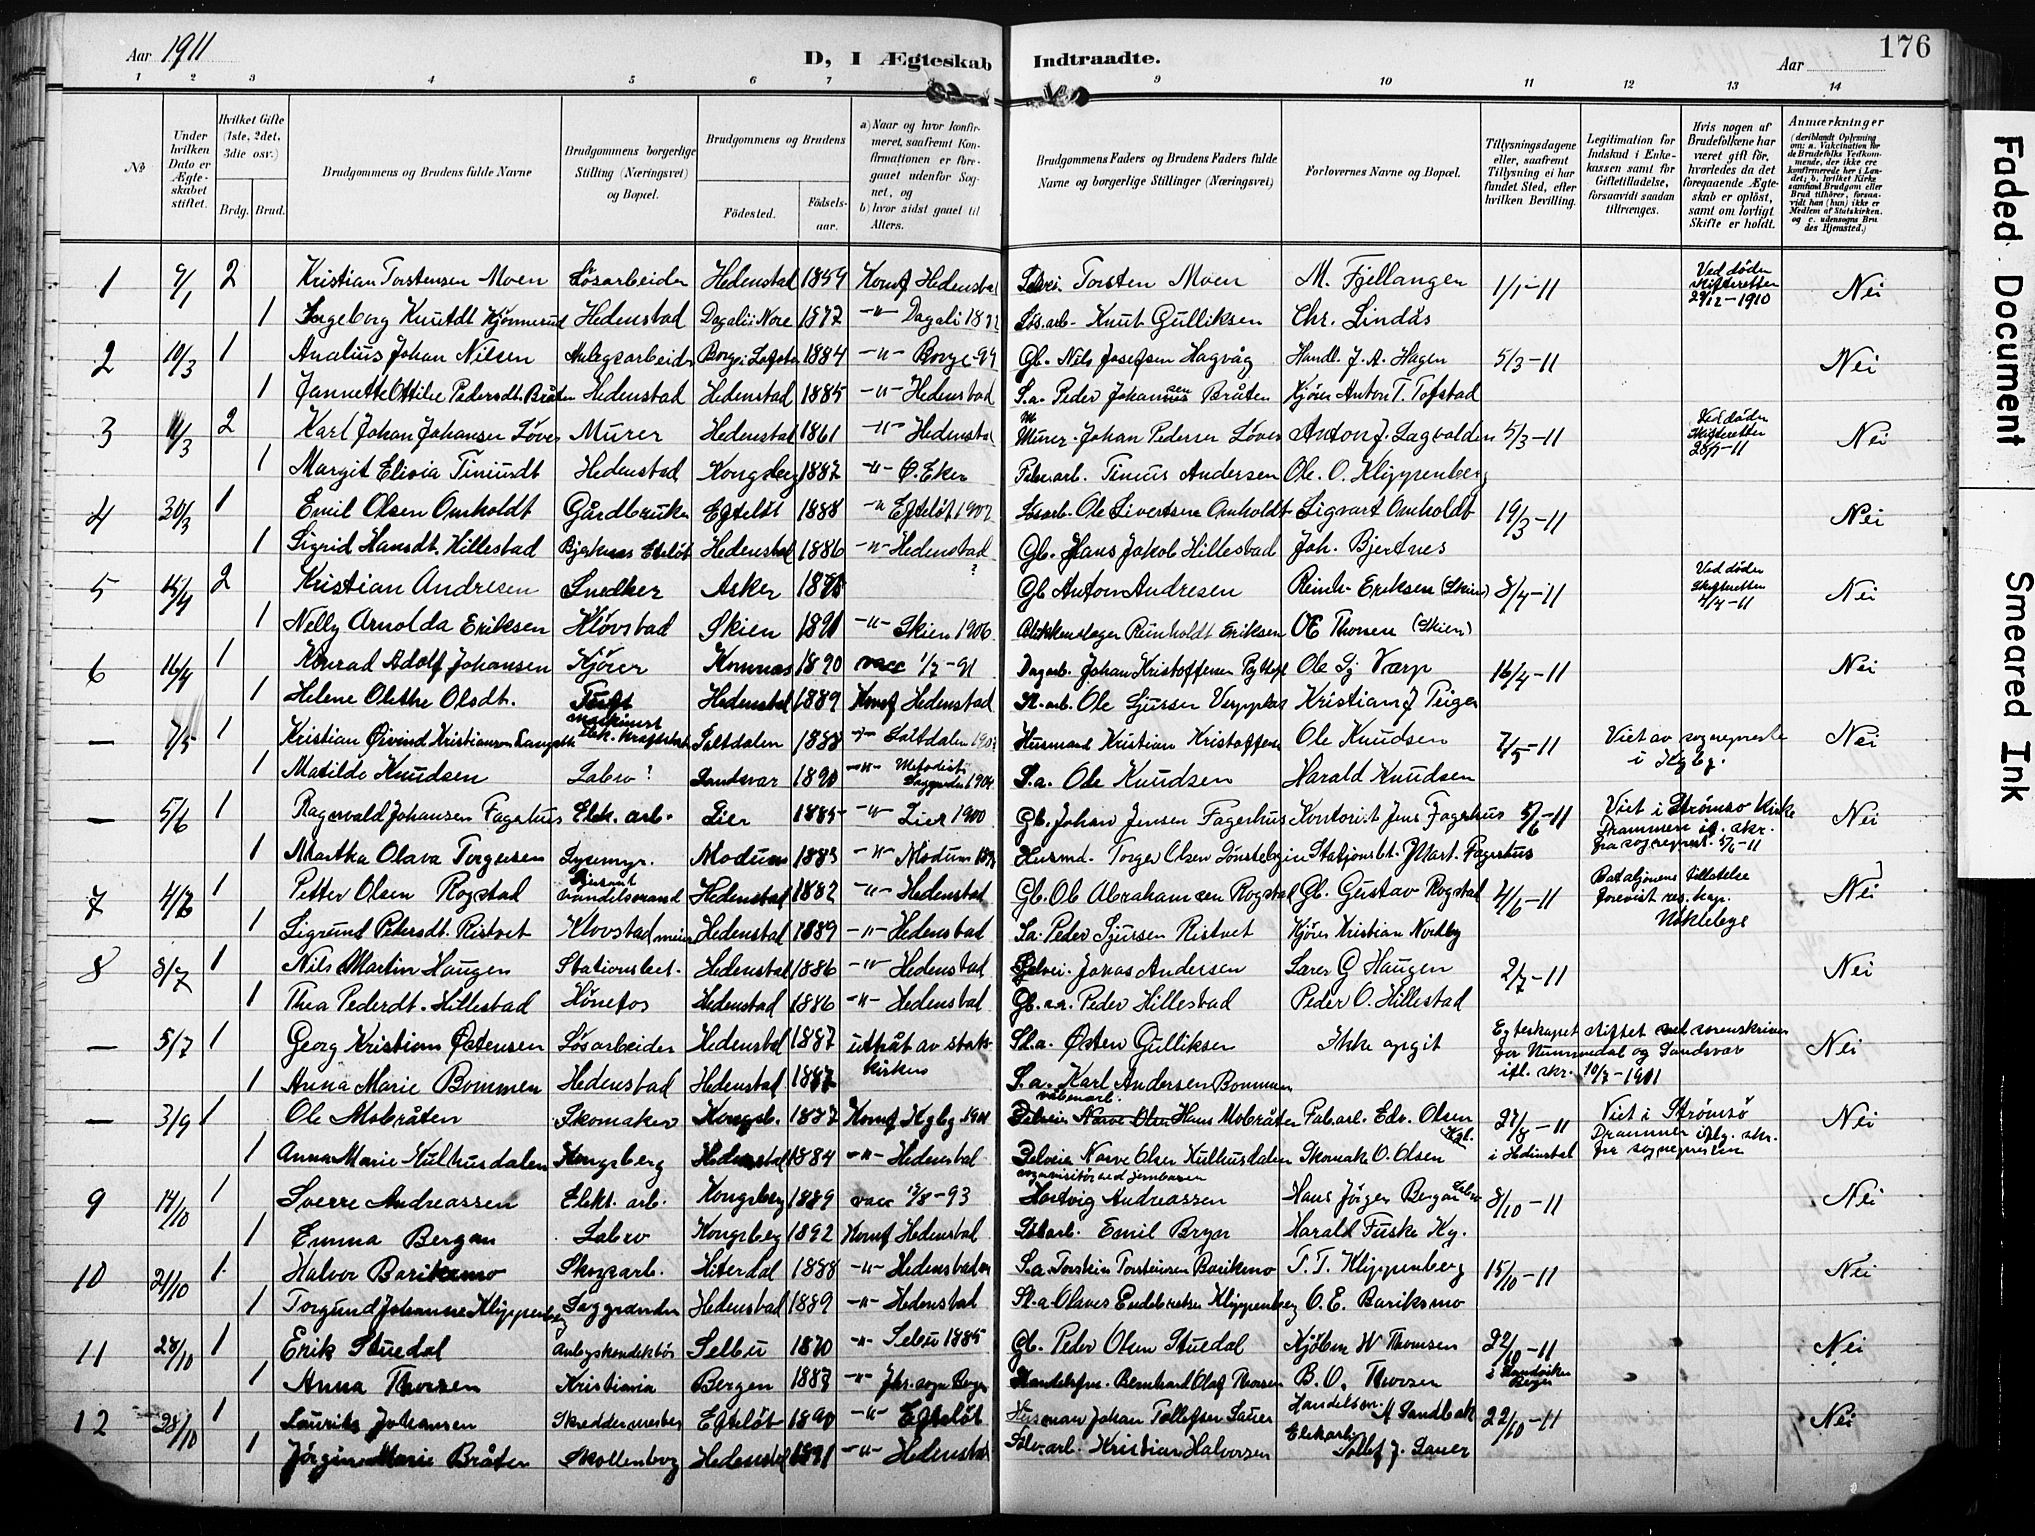 Aar 1911
D, I Ægteskab Indtraadte.
Aar
176
1 2 3 4 5 6 7 9 10 11 12 13 14
No
Under hvilken Dato er Ægteskabet stiftet.
Hvilket Gifte (1ste, 2det, 3die osv.)
Brdg. Brud.
Brudgommens og Brudens fulde Navne
Brudgommens borgerlige Stilling (Næringsvei) og Bopæl.
Brudgommens og Brudens
Fødested. Fødselsaar.
a) Naar og hvor konfirmeret, saafremt Konfirmationen er foregaaet udenfor Sognet, og
b) hvor sidst gaaet til Alters.
Brudgommens Faders og Brudens Faders fulde Navne og borgerlige Stillinger (Næringsvei)
Forlovernes Navne og Bopæl.
Tillysningsdagene eller, saafremt Tillysning ei har fundet Sted, efter hvilken Bevilling.
Legitimation for Indskud i Enkekassen samt for Giftetilladelse, forsaavidt saadan tiltrænges.
Hvis nogen af Brudefolkene har været gift før, hvorledes da det foregaaende Ægteskab er opløst, samt om lovligt Skifte er holdt.
Anmærkninger (deriblandt Oplysning om: a. Vakcination for de Brudefolks Vedkommende, der ikke ere konfirmerede her i Landet; b. hvilket Kirkesamfund Brudgom eller Brud tilhører, forsaavidt han (hun) ikke er Medlem af Statskirken, og c. udensogns Brudes Hjemsted.)
1 9/1 2 Kristian Torstensen Moen Løsarbeider Hedenstad 1859 Konf Hedenstad Torsten Moen M. Fjellanger 1/1-11 Ved døden skifteretten 29/12-1910 Nei
1 Ingeborg Knutdt Kjønnerud Hedenstad Dagali i Nore 1877 -"- Dagali Løs.arb. Knut Gulliksen Chr. Lindås
2 10/3 1 Analius Johan Nilsen Anlegsarbeider 1884 -"- Borge -99 Gb. Nils Josefsen Hagvåg Handl. J. A. Hagen 5/3-11 Nei
1 Jannette Ottilie Pedersdt. Bråten Hedenstad Hedenstad 1885 -"- Hedenstad S.a. Peder Johannesen Bråten Kjører Anton T. Tofstad
3 2 Karl Johan Johansen Løver Murer Hedenstad 1861 -"- Hedenstad Murer Johan Pedersen Løver Anton J. Lagvolden 5/3-11 Ved døden skifteretten 28/1-11 Nei
1 Margit Elivia Tiniusdt Hedenstad Kongsberg 1887 -"- Ø. Eker Tinius Andersen Ole. O. Klippenberg
4 30/3 1 Emil Olsen Omholdt Gårdbruker Efteløt 1888 -"- Efteløt 1902 Løsarb. Ole Sivertsen Omholdt Sigvart Omholdt 19/3-11 Nei
1 Sigrid Hansdt. Hillestad Bjerknes Hedenstad 1886 -"- Hedenstad Gb. Hans Jakob Hillestad Joh. Bjertnes
5 15/4 2 Kristian Andresen Snedker Asker ? Gb Anton Andresen Reinh. Eriksen (Skien) 8/4-11 Ved døden Skifteretten 4/4-11 Nei
1 Nelly Arnolda Eriksen Kløvstad Skien 1891 -"- Skien 1906 Blikkenslager Reinholdt Eriksen O E Thorsen (Skien)
6 16/4 1 Konrad Adolf Johansen Kjører Komnæs 1890 vacc 1/7-91 Dagarb. Johan Kristoffersen Ole Sj Værp 16/4-11 Nei
1 Helene Olethe Olsdt. Hedenstad 1889 Konf Hedenstad Ole Sjursen Kristian J Teigen
— 7/5 1 Kristian Øivind Kristiansen maskinist Elek. kraftstat. Saltdalen 1888 -"- Saltdalen Husmand Kristian Kristoffersen Ole Knudsen 7/5-11 Viet av sogneprest i Kgbg. Nei
1 Matilde Knudsen Labro ? Sandsvær 1890 -"- Metodist S.a. Ole Knudsen Harald Knudsen
— 5/6 1 Ragnvald Johansen Fagerhus Elek. arb. Lier 1885 -"- Lier 1900 Gb. Johan Jensen Fagerhus Kontorist Jens Fagerhus 5/6-11 Viet i Strømsø Kirke Drammen ifl. skr. fra sognepresten 5/6-11 Nei
1 Martha Olava Torgersen Modum 1883 -"- Modum Husmd. Torger Olsen Stationsbt. J Mart. Fagerhus
7 4/6 1 Petter Olsen Rogstad Sjersant Handelsmand Hedenstad 1882 -"- Hedenstad Gb. Ole Abrahamsen Rogstad Gb. Gustav Rogstad 4/6-11 Bataljonens tillatelse forevist res. kap. Ukkleberg Nei
1 Sigrund Petersdt. Ristvet Kløvstad Hedenstad 1889 -"- Hedenstad Sa. Peder Sjursen Ristvet Kjører Kristian Nordby
8 8/7 1 Nils Martin Haugen Stationsbet. Hedenstad 1886 -"- Hedenstad Jonas Andersen Lærer G Haugen 2/7-11 Nei
1 Thea Pederdt. Hillestad Hønefos Hedenstad 1886 -"- Hedenstad Peder Hillestad Peder O. Hillestad
— 5/7 1 Georg Kristian Østensen Løsarbeider Hedenstad 1887 uttråt av statskirken Østen Gulliksen Ikke opgit Egteskapet stiftet ved sorenskriver for Nummedal og Sandsvær ifl. skr. 10/7-1911 Nei
1 Anna Marie Bommen Hedenstad Hedenstad 1887 S.a. Karl Andersen Bommen
— 3/9 1 Ole Mobråten Skomaker Kongsb. 1877 Konf Kgbg Hans Mobråten Fab.arb. Edv. Olsen Kgb. 27/8-11 Viet i Strømsø Drammen iflg. skr. fra sognepresten Nei
1 Anna Marie Kulhusdalen Kongsberg Hedenstad 1884 -"- Hedenstad Narve Olsen Kulhusdalen Skomak O. Olsen i Hedenstad
9 14/10 1 Sverre Andreassen Elekt. arb. Kongsberg 1889 vacc -93 Hartvig Andreassen Hans Jörgen Bergan Labro 8/10-11 Nei
1 Emma Bergan Labro Kongsberg 1892 Konf Hedenstad Emil Bergan Harald Fuske Kg.
10 21/10 1 Halvor Bariksmo Skogsarb. Hiterdal 1888 -"- Hedenstad S.a. Torstein Torsteinsen Bariksmo T. T. Klippenberg 15/10-11 Nei
1 Torgund Johanne Klippenberg Saggrenden Hedenstad 1889 -"- Hedenstad Olaves Endebretsen Klippenberg O. E. Bariksmo
11 28/10 1 Erik Stuedal Selbu 1870 -"- Selbu 1885 Gb. Peder Olsen Stuedal Kjøbm W Thomsen 22/10-11 Nei
1 Anna Thorsen Kristiania Bergen 1883 -"- Bernhard Olaf Thorsen B. O. Thorsen i Sandviken Bergen
12 28/10 1 Laurits Johansen Skreddermester Efteløt 1890 -"- Efteløt Husman Johan Tollefsen Sauer Handelsm. M Sandbæk 22/10-11 Nei
1 Jørgine Marie Bråten Skollenborg Hedenstad 1891 -"- Hedenstad Kristian Halvorsen Elekarb. Tollef J. Sauer
Faded Document Smeared Ink